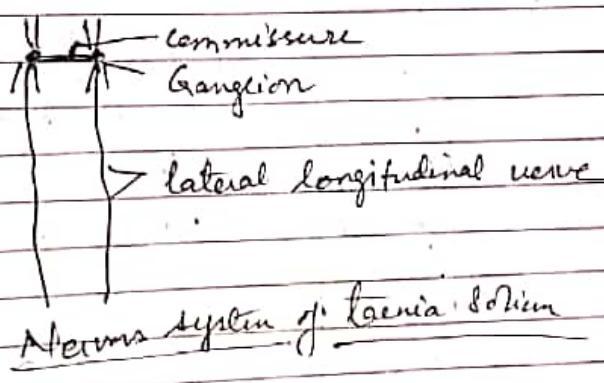 commissure
Ganglion
lateral longitudinal nerve
Nervous system of Taenia Solium